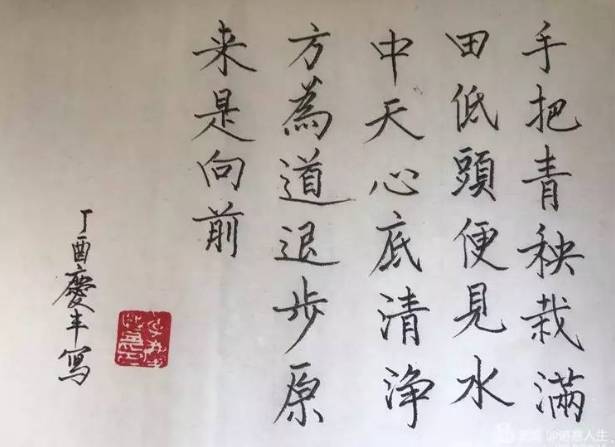 手把青秧栽滿
田低頭便見水
中天心底清淨
方為道退步原
来是向前
丁酉慶丰写